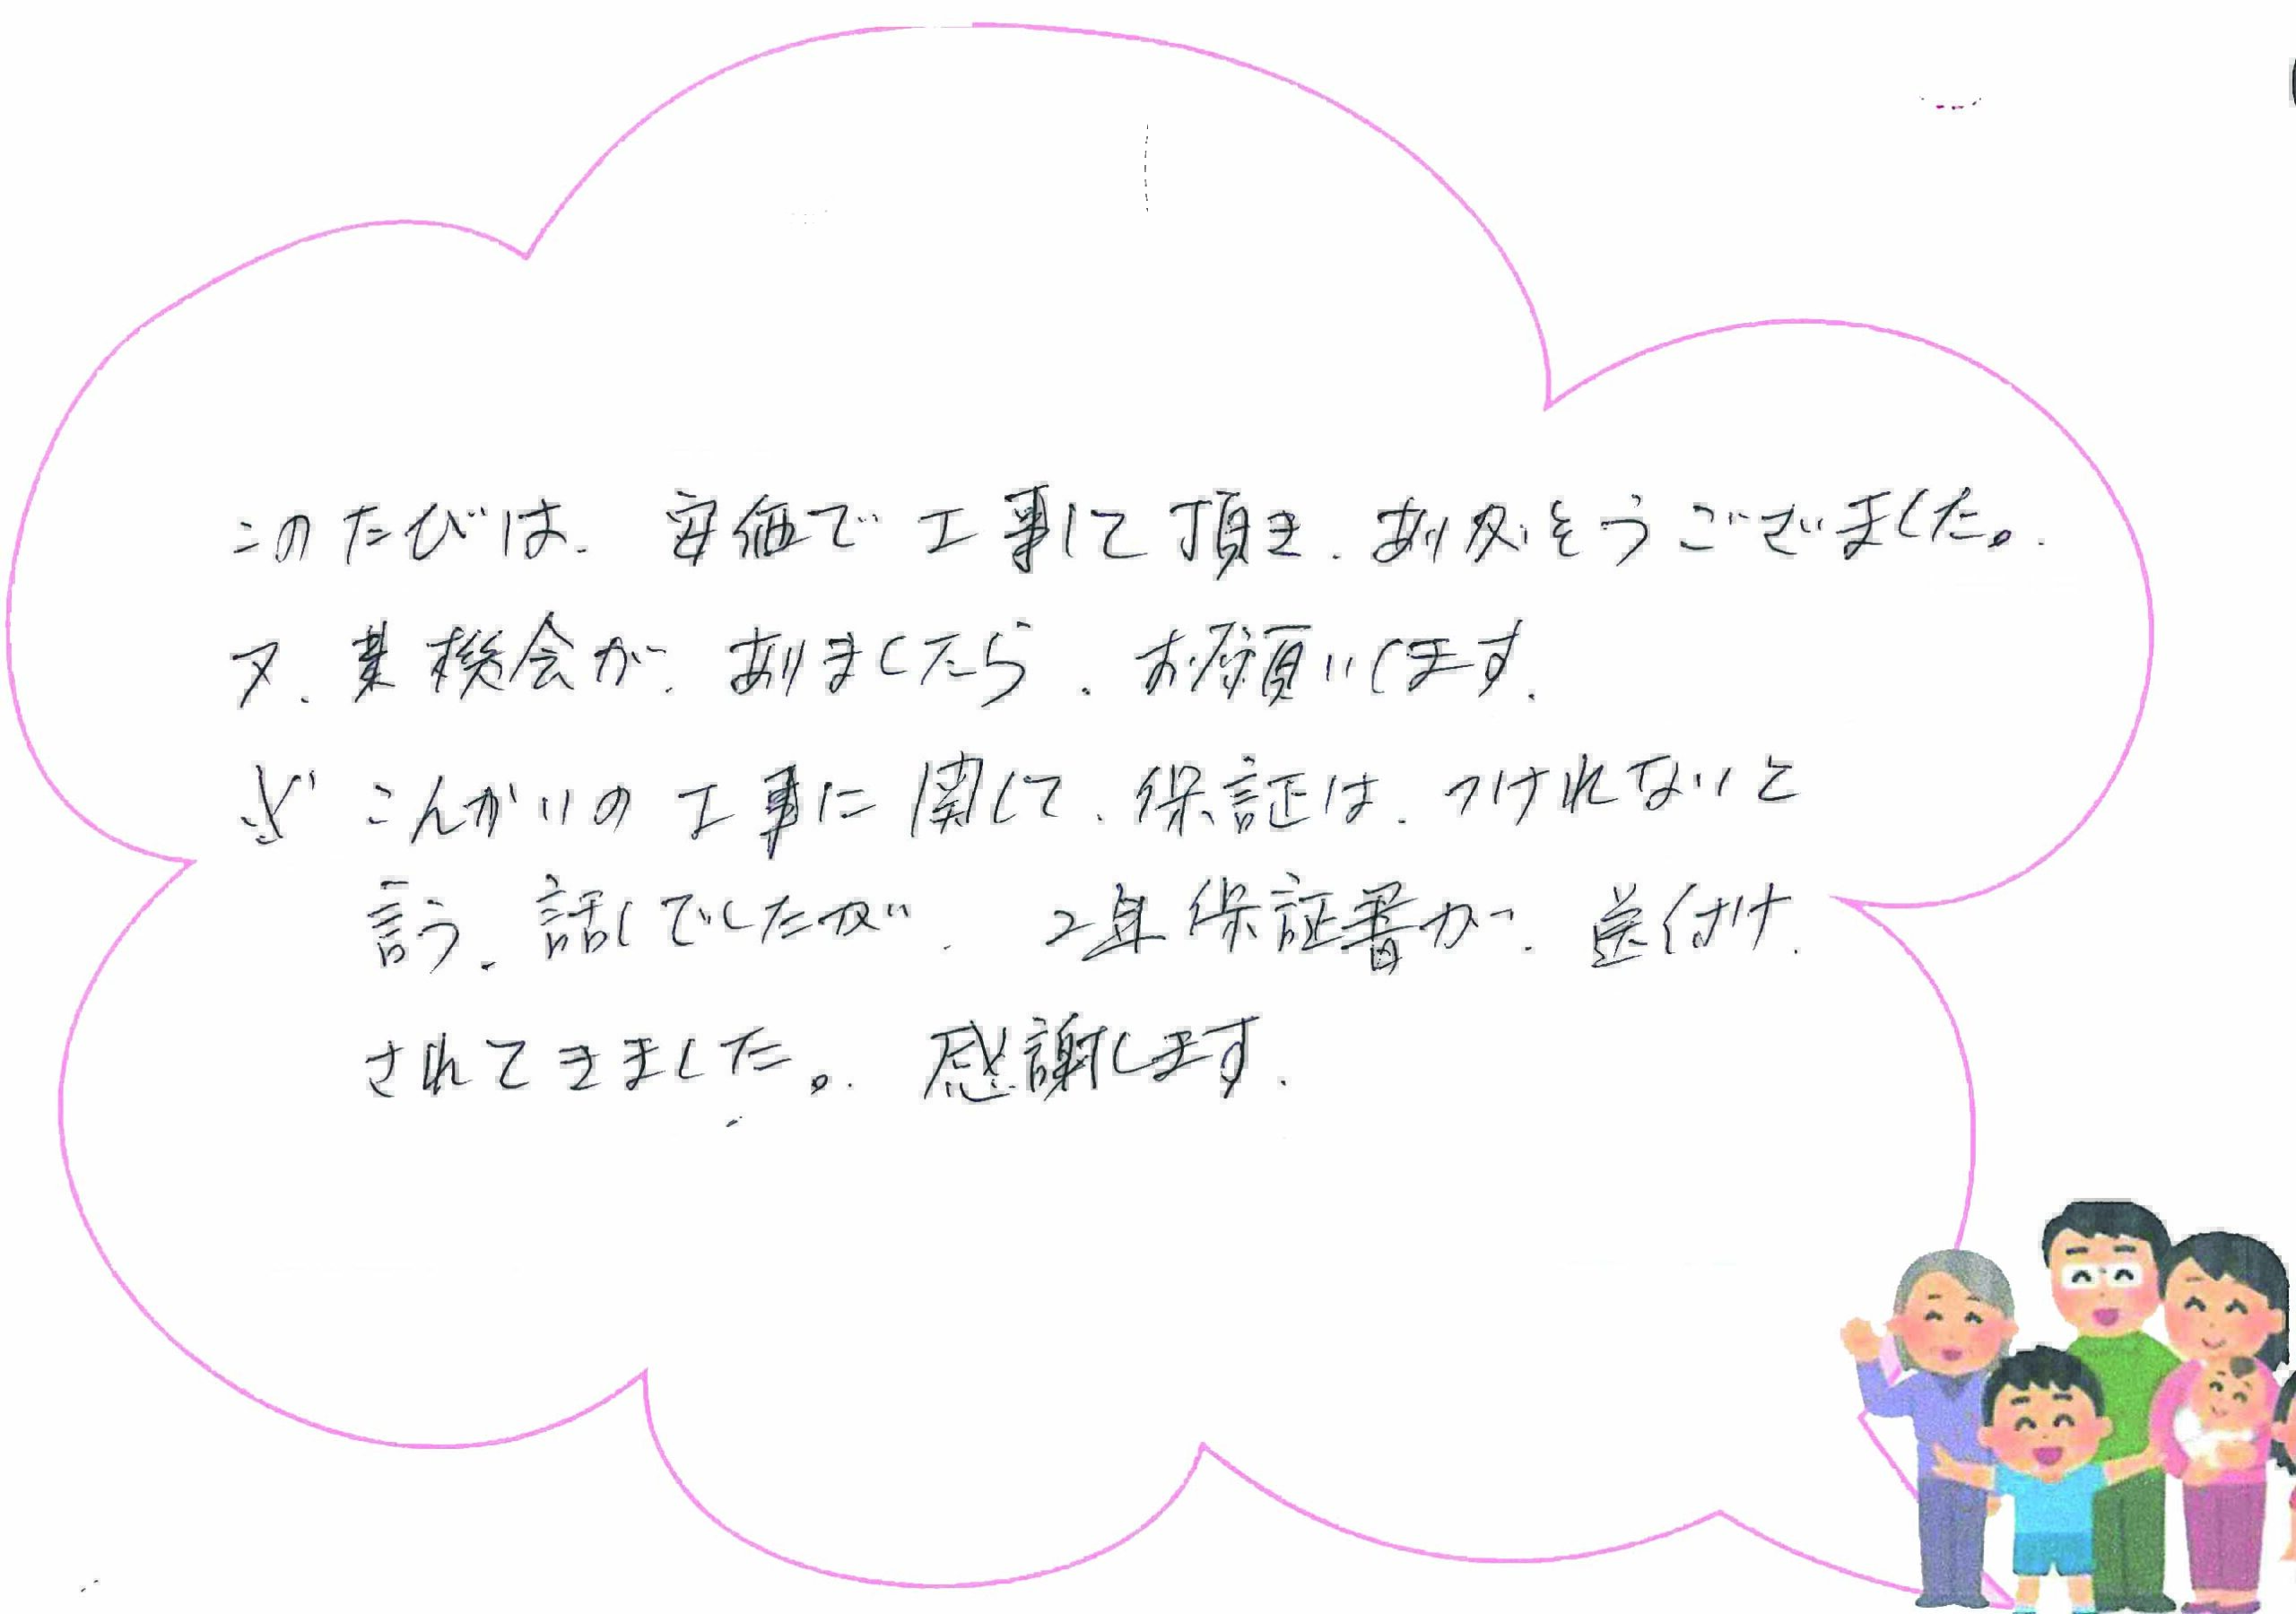 このたびは、安価で工事して頂き、ありがとうございました。
又、機会が、ありましたら、お願いします。
こんかいの工事に関して、保証は、つけれないと
言う、話しでしたが、2年保証書が、送付け、
されてきました。感謝します。